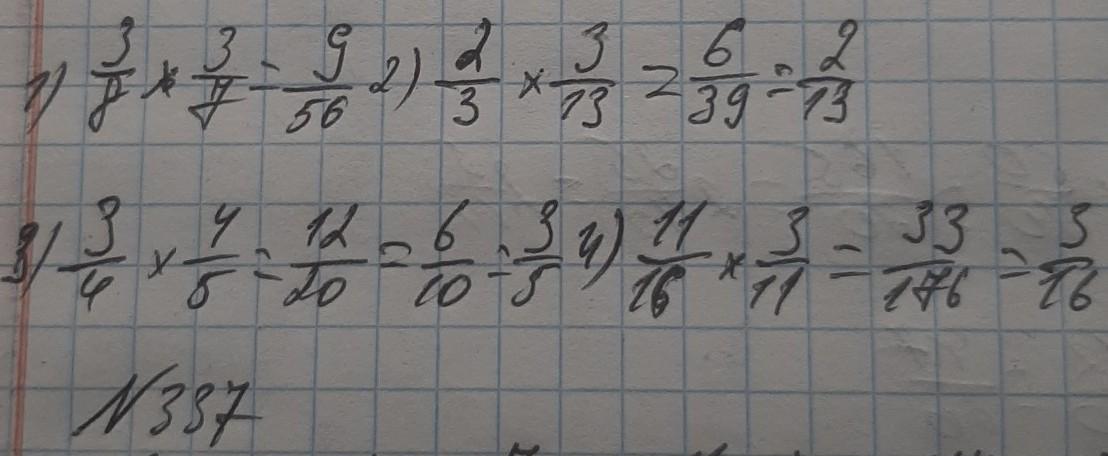 1) 3/8 × 3/7 = 9/56 2) 2/3 × 3/13 = 6/39 = 2/13
3) 3/4 × 4/5 = 12/20 = 6/10 = 3/5 4) 11/16 × 3/11 = 33/176 = 3/16
№337